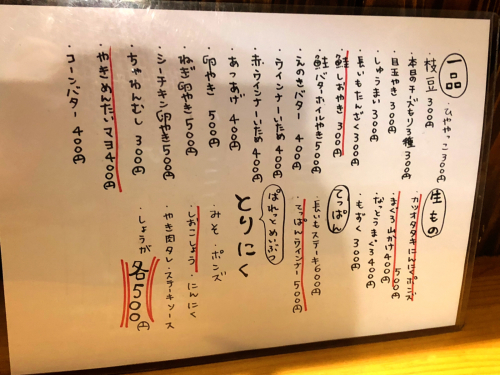 一品
・ひややっこ300円
枝豆300円
・本日のチーズもり3種300円
・目玉やき300円
・しゅうまい300円
・長いもたんざく300円
・鮭しおやき300円
・鮭バターホイルやき500円
・えのきバター400円
・ウインナーいため400円
・赤ウインナーいため400円
・あつあげ400円
・卵やき500円
・ねぎ卵やき500円
・シーチキン卵やき500円
・ちゃわんむし300円
・やきめんたいマヨ400円
・コーンバター400円
生もの
・カツオタタキにんにくポンズ
500円
・まぐろ山かけ400円
・なっとうまぐろ400円
・もずく300円
てっぱん
・長いもステーキ600円
・てっぱんウインナー500円
ぱれっとめいぶつ
とりにく
・みそ・ポンズ
・しおこしょう・にんにく
・やき肉タレ・ステーキソース
・しょうが
各500円